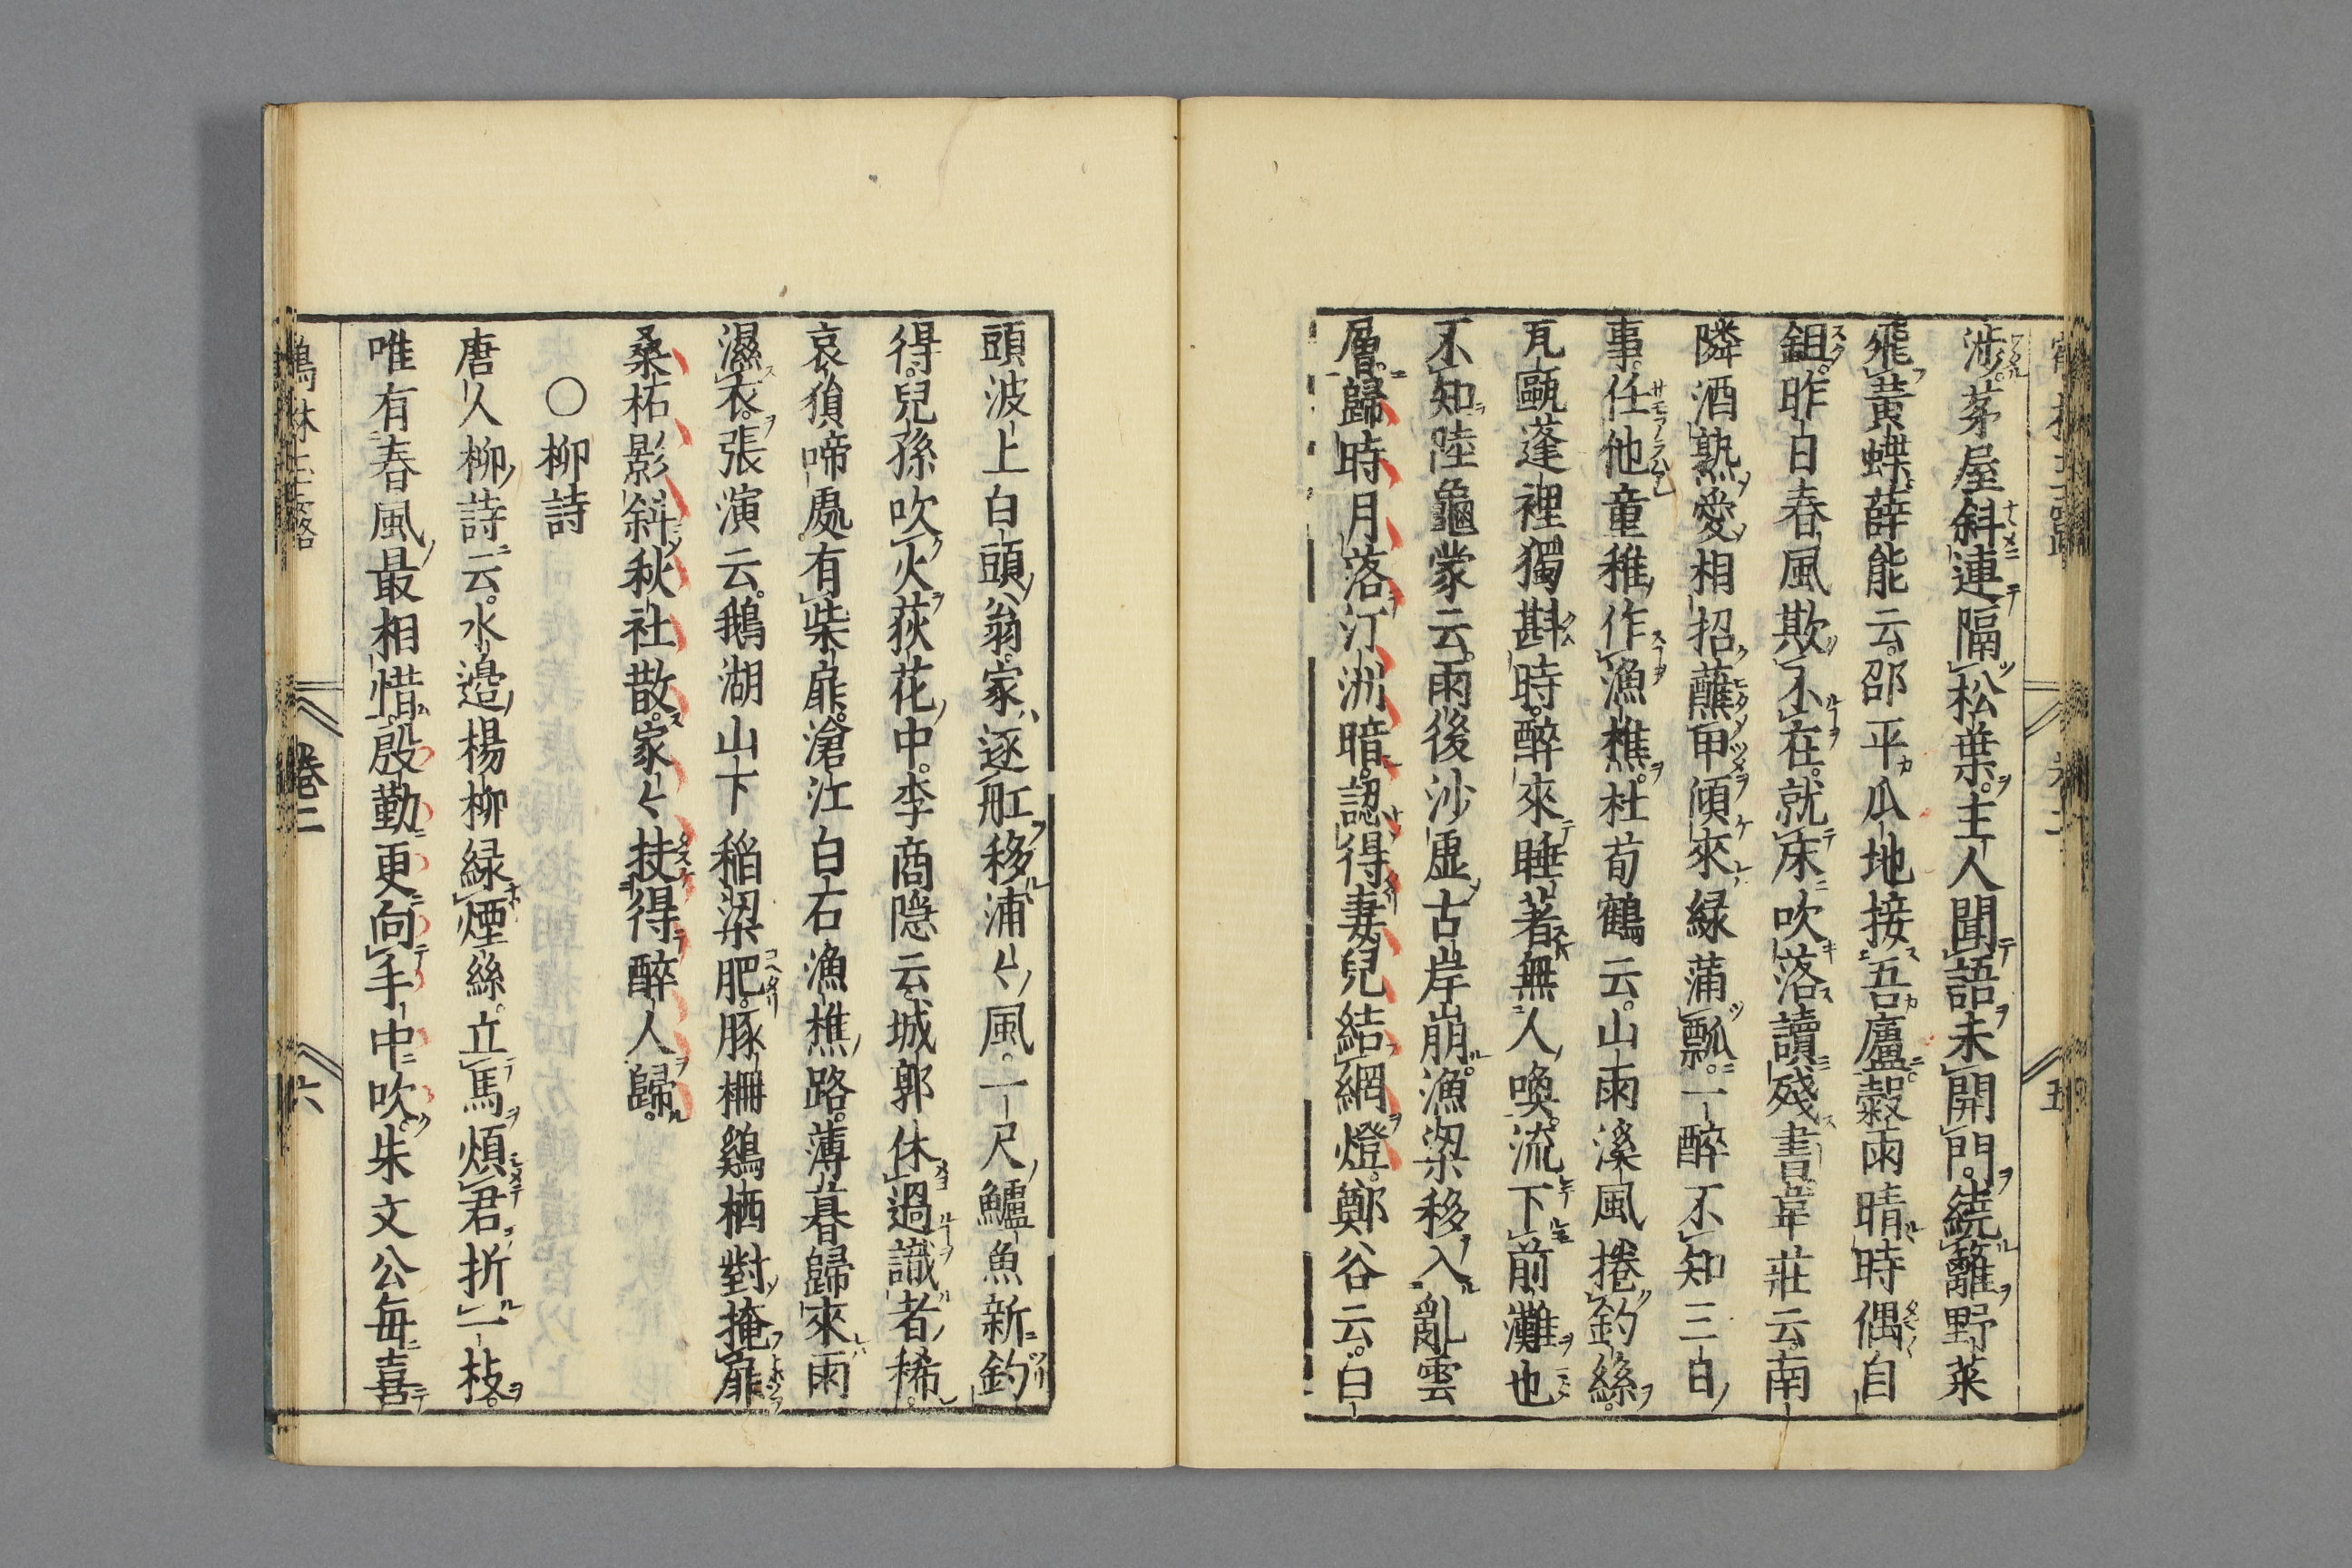 渉茅屋斜連隔松葉主人聞語未開門繞籬野菜
飛黃蝶薛能云邵平瓜地接吾廬穀雨晴時偶自
鉏昨日春風欺不在就床吹落讀殘書韋莊云南
隣酒熟愛相招蘸甲傾來緑蒲瓢一醉不知三日
事任他童稚作漁樵杜荀鶴云山雨溪風捲釣絲
瓦甌蓬裡獨斟時醉來睡著無人喚流下前灘也
不知陸龜蒙云雨後沙虚古岸崩漁梁移入亂雲
層歸時月落汀洲暗認得妻兒結網燈鄭谷云白
頭波上白頭翁家逐舡移浦〻風一尺鱸魚新釣
得兒孫吹火荻花中李商隠云城郭休過識者稀
哀猿啼處有柴扉滄江白石漁樵路薄暮歸來雨
濕衣張演云鵝湖山下稲梁肥豚柵鷄栖對掩扉
桑柘影斜秋社散家〻扶得醉人歸
○柳詩
唐人柳詩云水邉楊柳緑煙絲立馬煩君折一枝
唯有春風最相惜殷勤更向手中吹朱文公毎喜
鶴林玉露　卷二　六